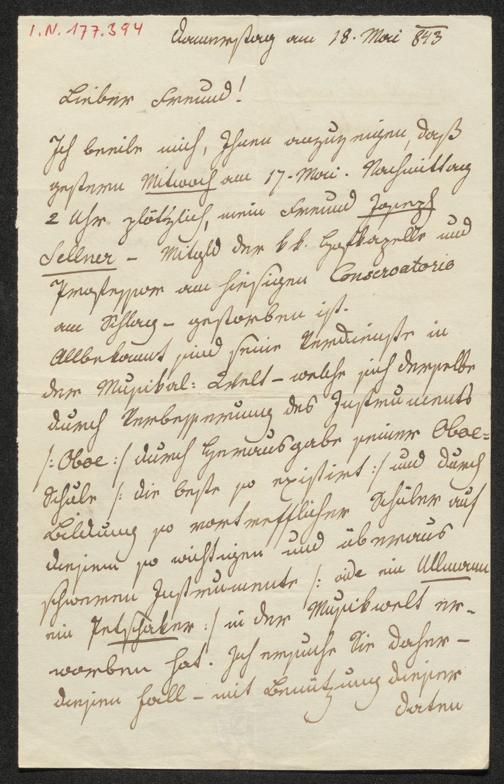 I.N. 177.394
Donnerstag am 18. Mai 843
Lieber Freund!
Ich beeile mich, Ihnen anzuzeigen, daß
gestern Mitwoch am 17. Mai. Nachmittag
2 Uhr plötzlich, mein Freund Joseph
Sellner – Mitgld der kk. Hofkapelle und
Professor am hiesigen Conservatorio
am Schlag – gestorben ist.
Allbekannt sind seine Verdienste in
der Musikal: Welt – welche sich derselbe
durch Verbesserung des Instruments
/: Oboe :/ durch Herausgabe seiner Oboe=
Schule /: die beste so existirt :/ und durch
Bildung so vortrefflicher Schüler auf
diesem so wichtigen und überaus
schweren Instrumente /: wie ein Ullmann
ein Petschaker :/ in der Musikwelt er-
worben hat. Ich ersuche Sie daher –
diesen Fall – mit Benützung dieser
Daten